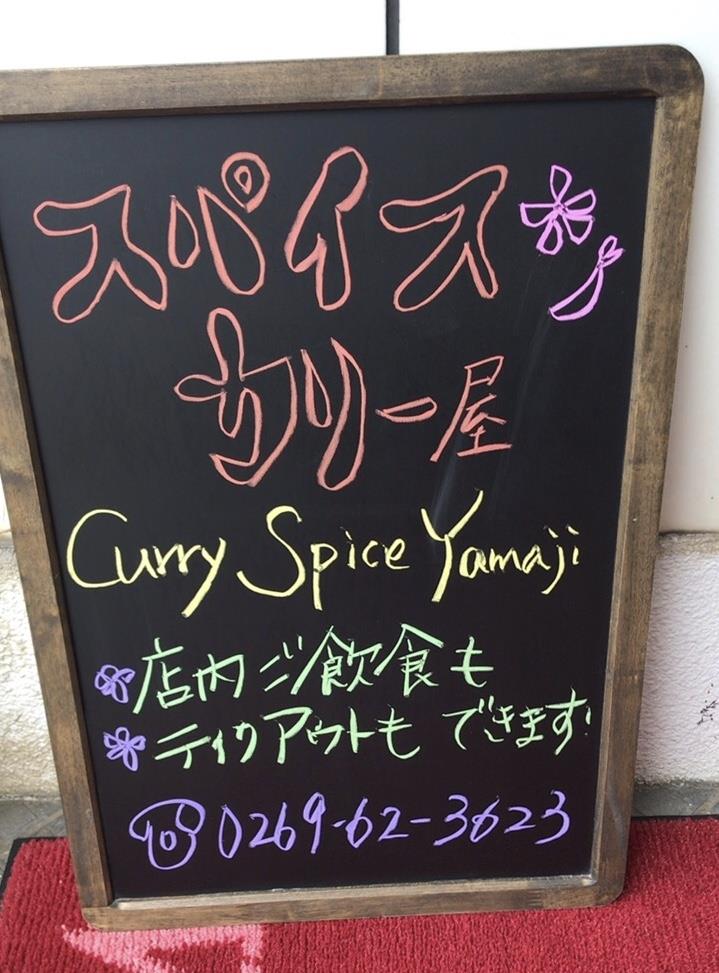 スパイス
カリー屋
Curry Spice Yamaji
店内ご飲食も
テイクアウトもできます!
☎0269-62-3623